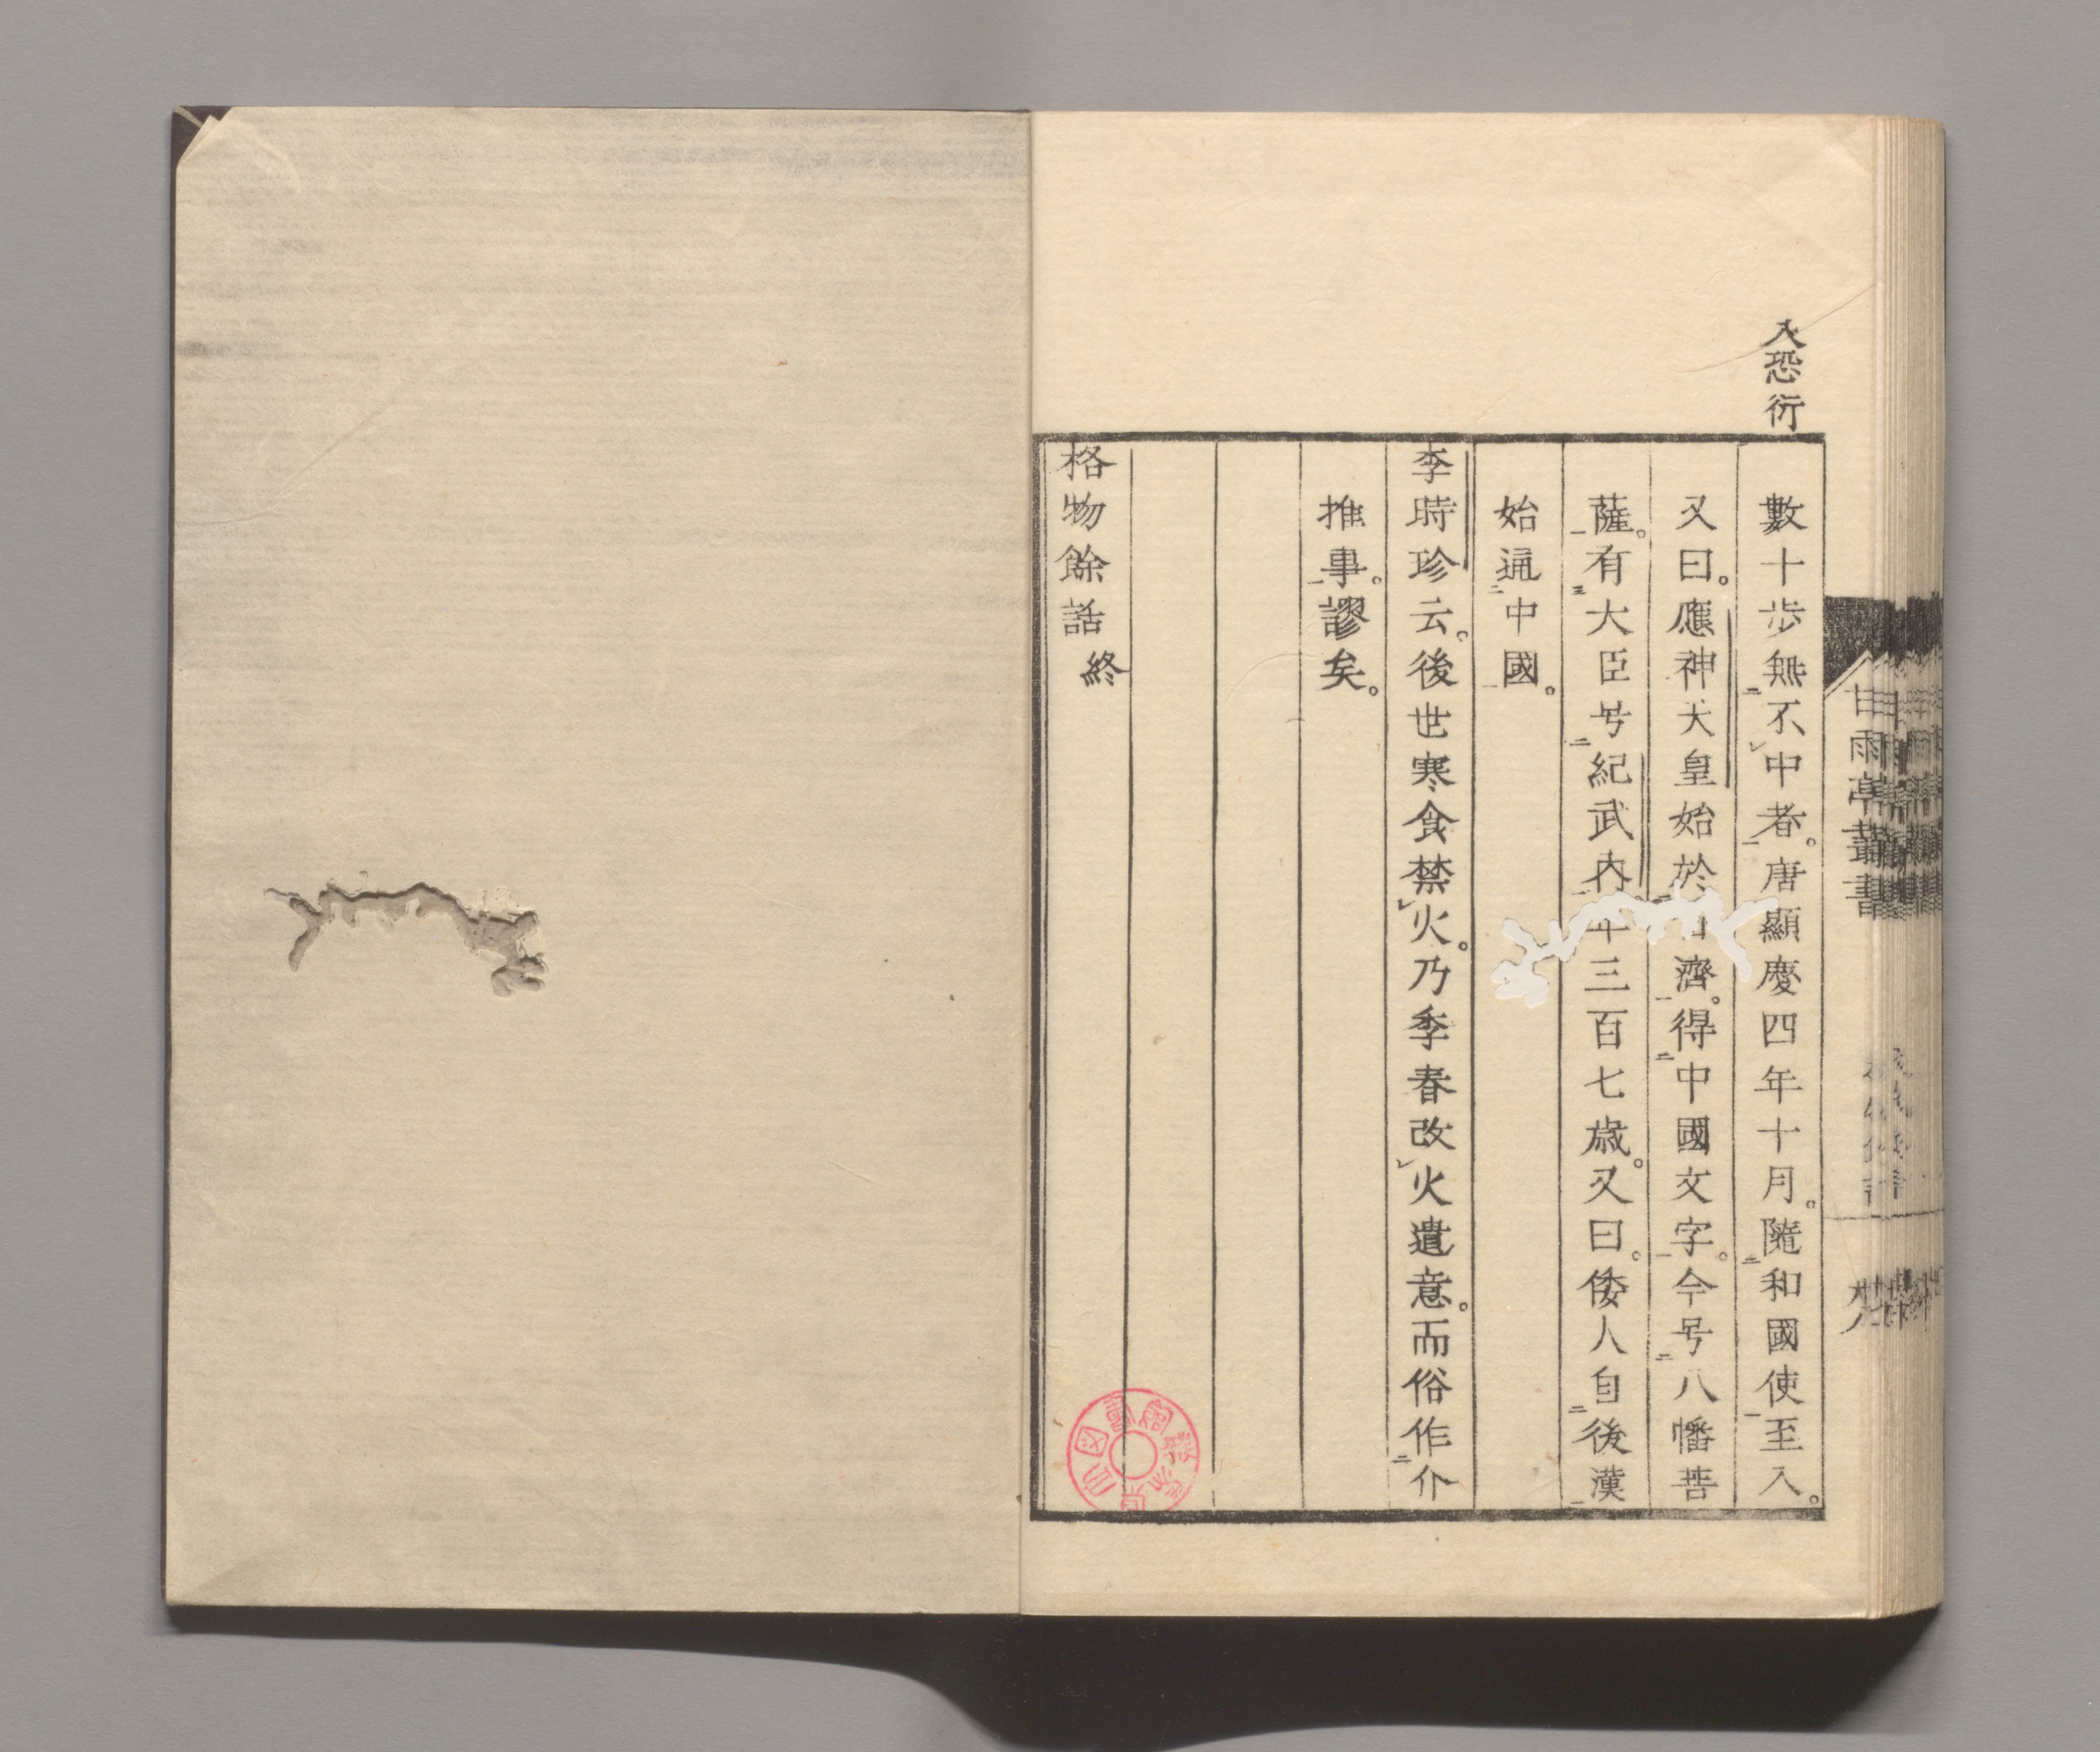 入恐衍
數十歩無不中者。唐顯慶四年十月。隨和國使至入。
又曰。應神大皇始於濟。得中國文字。今号八幡菩
薩。有大臣号紀武内年三百七歳。又曰。倭人自後漢
始通中國。
李時珍云。後世寒食禁火。乃季春改火遺意。而俗作介
推事。謬矣。
格物餘話終
甘雨亭叢書